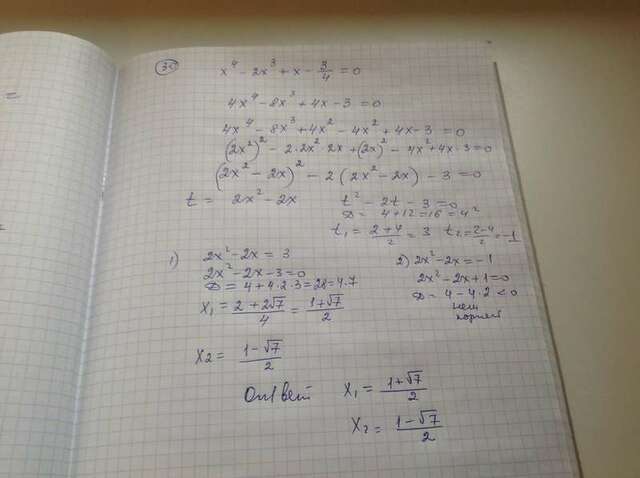 35
x⁴ - 2x³ + x - 3/4 = 0
4x⁴ - 8x³ + 4x - 3 = 0
4x⁴ - 8x³ + 4x² - 4x² + 4x - 3 = 0
(2x²)² - 2·2x²·2x + (2x)² - 4x² + 4x - 3 = 0
(2x² - 2x)² - 2(2x² - 2x) - 3 = 0
t = 2x² - 2x t² - 2t - 3 = 0
D = 4 + 12 = 16 = 4²
t₁ = (2+4)/2 = 3 t₂ = (2-4)/2 = -1
1) 2x² - 2x = 3
2x² - 2x - 3 = 0
D = 4 + 4·2·3 = 28 = 4·7
x₁ = (2+2√7)/4 = (1+√7)/2
2) 2x² - 2x = -1
2x² - 2x + 1 = 0
D = 4 - 4·2 < 0
нет
корней
x₂ = (1-√7)/2
Ответ x₁ = (1+√7)/2
x₂ = (1-√7)/2